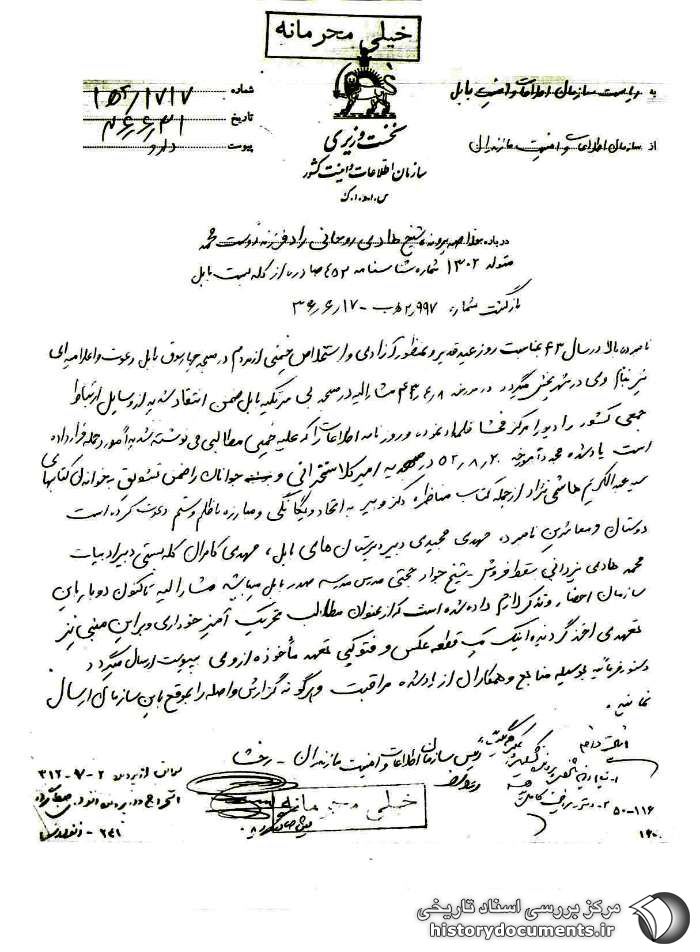 خیلی محرمانه
به ریاست سازمان اطلاعات و امنیت بابل
از سازمان اطلاعات و امنیت مازندران
شماره ۱۵۲/۱۷۱۷
تاریخ ۳۶/۶/۳۱
پیوست دارد
نخست وزیری
سازمان اطلاعات و امنیت کشور
س.ا.و.ا.ک
درباره خلاصه پرونده شیخ هادی روحانی راد فرزند دوست محمد
متولد ۱۳۰۲ شماره شناسنامه ۴۵۲ صادره از کله بست بابل
بازگشت بشماره ۲۹۹۷/ﻫ ب - ۳۶/۶/۱۷
نامبرده بالا در سال ۴۳ بمناسبت روز عید غدیر و بمنظور آزادی و استخلاص خمینی از مردم در صحن چهارسوق بابل دعوت و اعلامیه‌ای
نیز بنام وی در شهر پخش میگردد در مورخه ۴۳/۶/۸ مشارالیه در صحن بی سر تکیه بابل ضمن انتقاد شدید از وسایل ارتباط
جمعی کشور رادیو را مرکز فحشا قلمداد نموده و روزنامه اطلاعات را که علیه خمینی مطالبی می نوشته شدیداً مورد حمله قرار داده
است یادشده مجدداً مورخه ۵۲/۸/۲۰ در مهدیه امیرکلا سخنرانی و جوانان را ضمن تشویق بخواندن کتابهای
سید عبدالکریم هاشمی نژاد از جمله کتاب مناظره دکتر و پیر به اتحاد و یگانگی و مبارزه با ظلم و ستم دعوت کرده است
دوستان و معاشرین نامبرده مهدی مجیدی دبیر دبیرستان های بابل، مهدی کامران کله بستی دبیر ادبیات
محمد هادی یزدانی سقط فروش - شیخ جواد حجتی مدرس مدرسه صدر بابل میباشد مشارالیه تاکنون دوبار باین
سازمان احضار و تذکر لازم داده شده است که از عنوان مطالب تحریک آمیز خودداری و براین مبنی نیز
تعهدی اخذ گردیده اینک یک قطعه عکس و فتوکپی تعهد مأخوذه از وی به پیوست ارسال میگردد
دستور فرمائید بوسیله منابع و همکاران از یادشده مراقبت و هرگونه گزارش واصله را بموقع باین سازمان ارسال
نمائید.
رئیس سازمان اطلاعات و امنیت مازندران - رخشا
خیلی محرمانه
۳۱۲-۷-۲
۵۰-۱۱۶
۲۴۱
مرکز بررسی اسناد تاریخی
historydocuments.ir